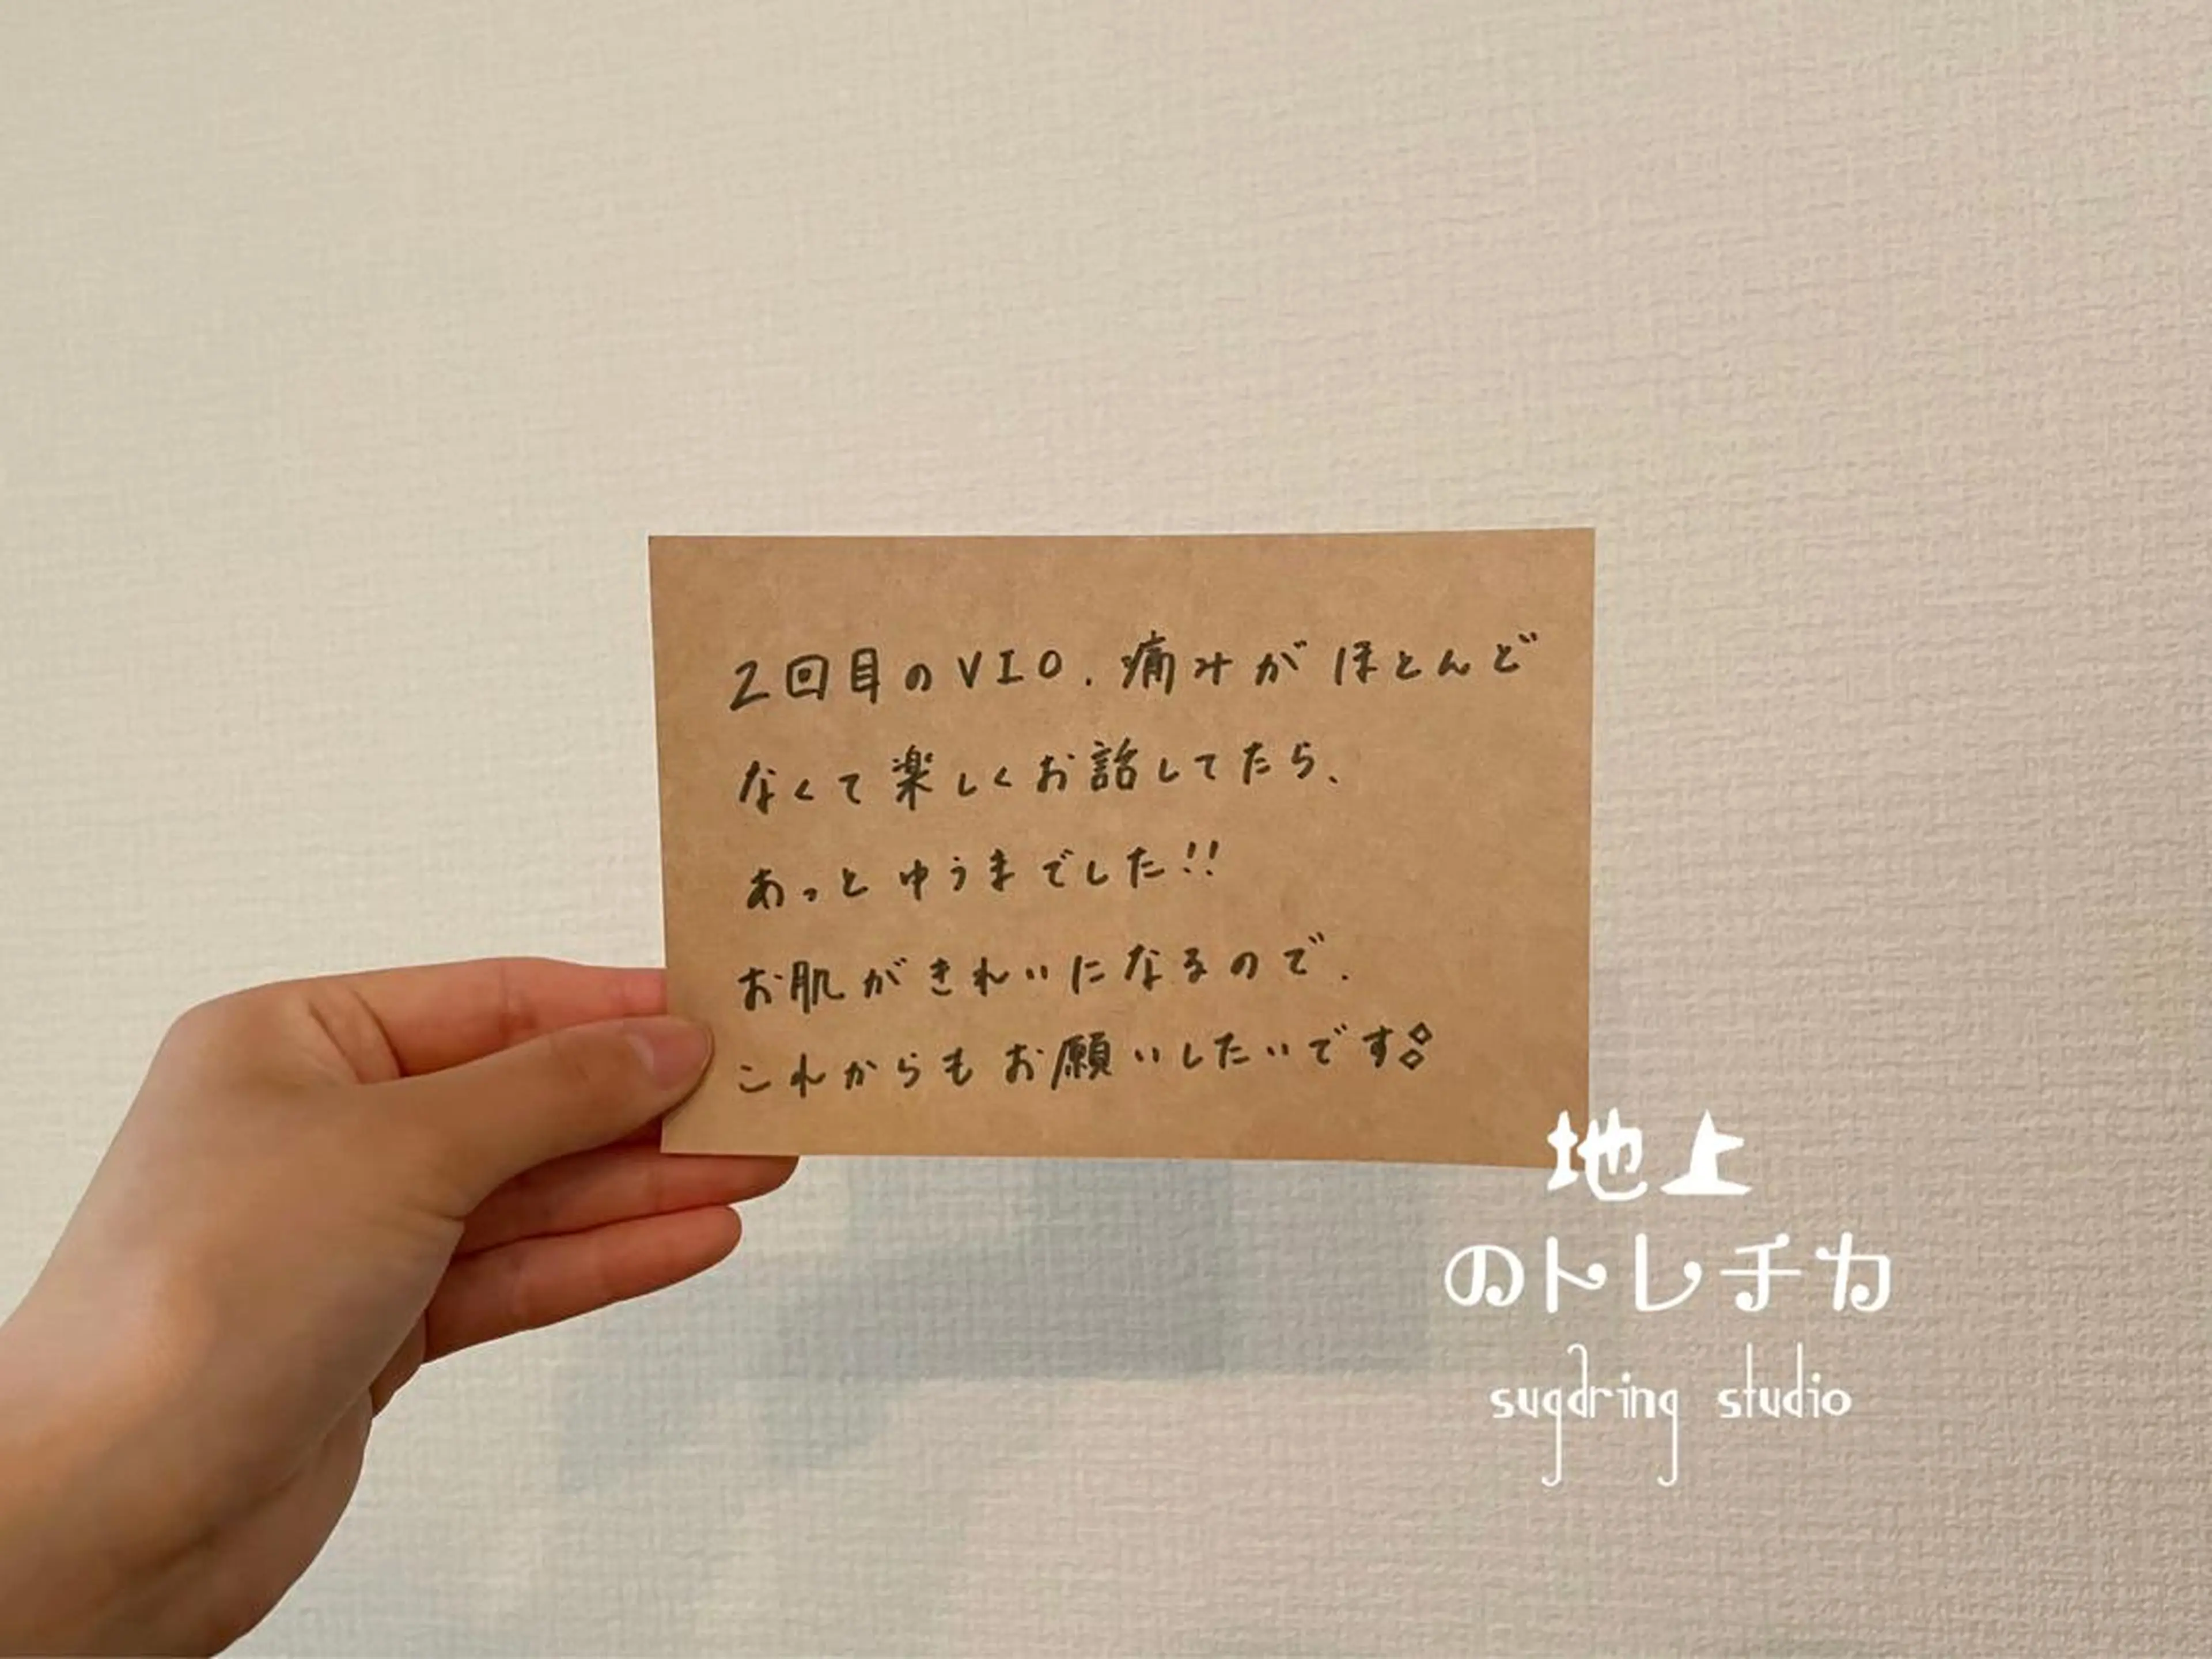 2回目のVIO.痛みがほとんど
なくて楽しくお話してたら、
あっとゆうまでした!!
お肌がきれいになるので.
これからもお願いしたいです
地上
のトレチカ
sugaring studio